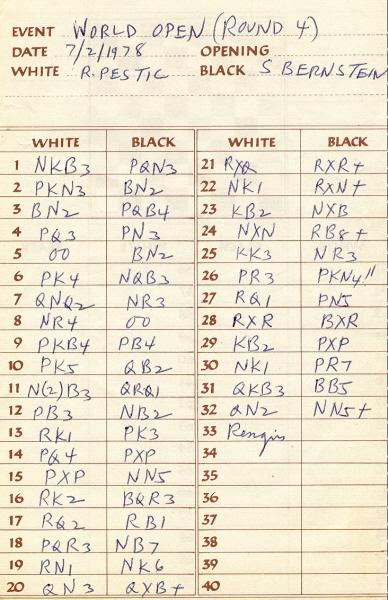 EVENT WORLD OPEN (ROUND 4)
DATE 7/2/1978 OPENING
WHITE R. PESTIC BLACK S BERNSTEIN
WHITE BLACK WHITE BLACK
1 NKB3 PQN3 21 RXQ RXR+
2 PKN3 BN2 22 NK1 RXN+
3 BN2 PQB4 23 KB2 NXB
4 PQ3 PN3 24 NXN RB8+
5 OO BN2 25 KK3 NR3
6 PK4 NQB3 26 PR3 PKN4!!
7 QNQ2 NR3 27 RQ1 PN5
8 NR4 OO 28 RXR BXR
9 PKB4 PB4 29 KB2 PXP
10 PK5 QB2 30 NK1 PR7
11 N(2)B3 QRQ1 31 QKB3 BB5
12 PB3 NB2 32 QN2 NN5+
13 RK1 PK3 33
14 PQ4 PXP 34
15 PXP NN5 35
16 RK2 BQR3 36
17 RQ2 RB1 37
18 PQR3 NB7 38
19 RN1 NK6 39
20 QN3 QXB+ 40